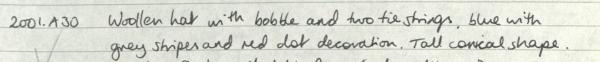 2001.A30 Woollen hat with bobble and two tie strings, blue with
grey stripes and red dot decoration. Tall conical shape.